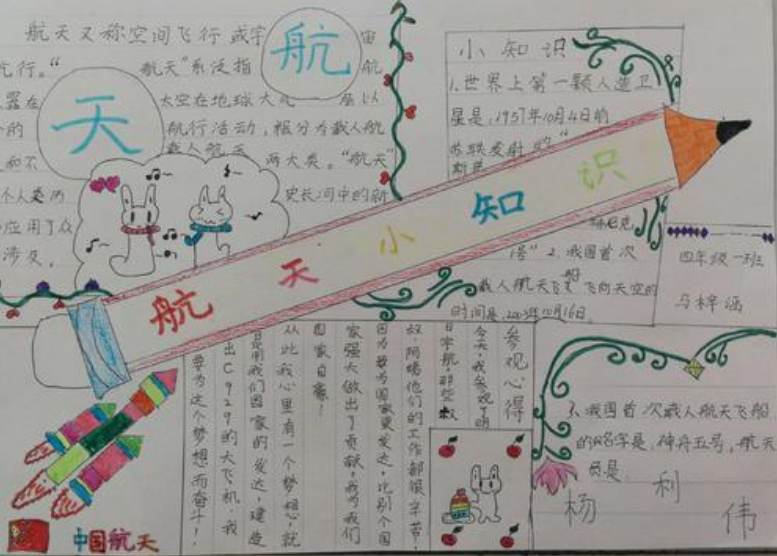 航天又称空间飞行或宇宙
航行。“航天”系泛指航
器在太空在地球大气层以
的航行活动,粗分为载人航
和不载人航天两大类。“航天”
个人类历史长河中的新
应用了众
涉及
航
天
小知识
1.世界上第一颗人造卫
星是,1957年10月4日的
苏联发射的“
斯普
号”2.我国首次
载人航天飞船飞向天空的
时间是,2003年10月16日。
四年级一班
马梓涵
航天小知识
参观心得
今天,我参观了明
日宇航,那些叔
叔、阿姨他们的工作都很辛苦!
因为要为国家更发达,比别个国
家强大做出了贡献,我为我们
国家自豪!
从此我心里有一个梦想,就
是用我们国家的发达,建造
出C929的大飞机,我
要为这个梦想而奋斗!
3.我国首次载人航天飞船
的名字是,神舟五号,航天
员是
杨利伟
中国航天